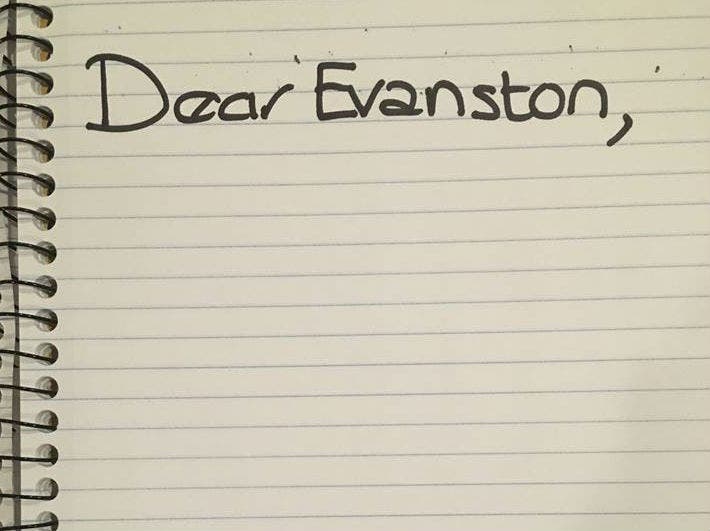 Dear Evanston,